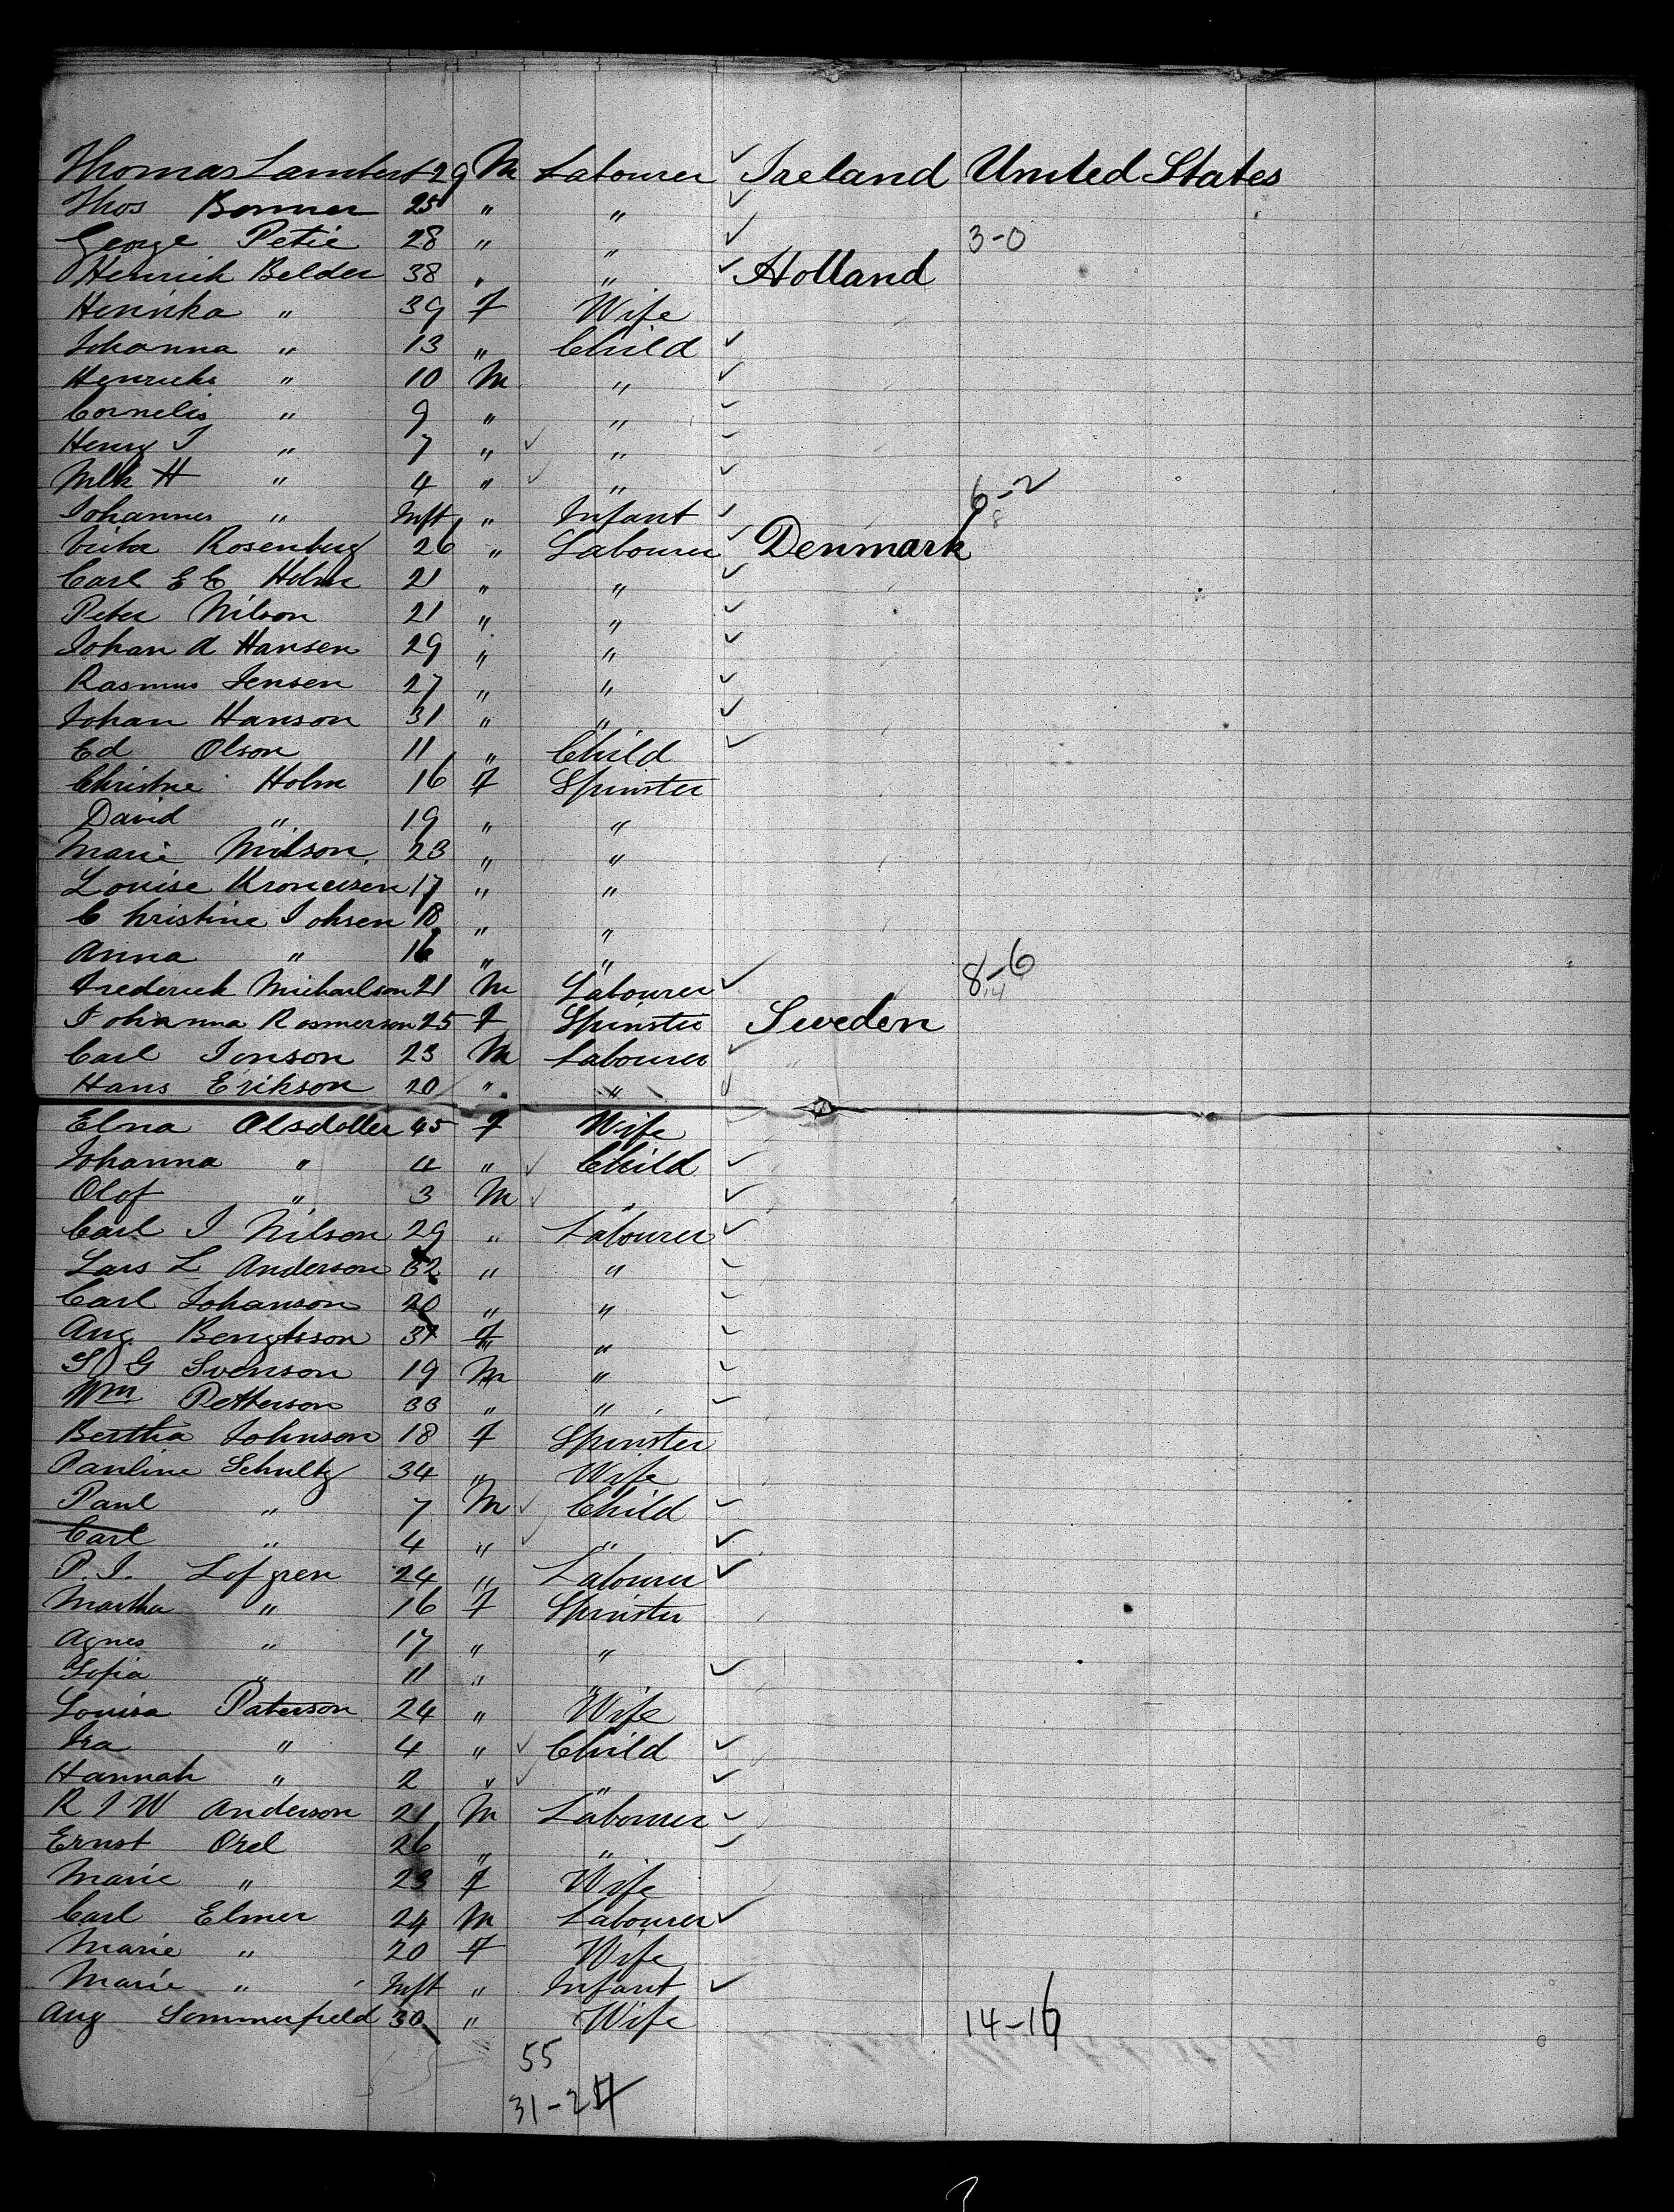 Thomas Lambert 29 M Labourer ✓ Ireland United States
Thos Bonner 25 " " ✓
George Petie 28 " " ✓ 3-0
Henrich Belder 38 " " ✓ Holland
Henrika " 39 F Wife
Johanna " 13 " Child ✓
Henrichs " 10 M " ✓
Cornelis " 9 " " ✓
Henry J " 7 " ✓ " ✓
H " 4 " ✓ " ✓ 6-2
Johannes " Inft " Infant ✓ 8
Rosenberg 26 " Labourer ✓ Denmark
Carl E C Holm 21 " " ✓
Peter Nilson 21 " " ✓
Johan A Hansen 29 " " ✓
Rasmus Jensen 27 " " ✓
Johan Hanson 31 " " ✓
Ed Olson 11 " Child ✓
Christne Holm 16 F Spinster
David " 19 " "
Marie Nilson 23 " "
Louise 17 " "
Christine Johsen 18 " "
Anna " 16 " "
Frederick Michaelson 21 M Labourer ✓ 8-6
14
Johanna Rasmerson 25 F Spinster Sweden
Carl Jonson 23 M Labourer ✓
Hans Erikson 20 " " ✓
Elna Olsdotter 45 F Wife
Johanna " 4 " ✓ Child ✓
Olof " 3 M ✓ " ✓
Carl J Nilson 29 " Labourer ✓
Lars L Anderson 32 " " ✓
Carl Johanson 20 " " ✓
Aug Bengtsson 37 F " ✓
S G Svenson 19 M " ✓
Wm Petterson 33 " " ✓
Bertha Johnson 18 F Spinster
Pauline Schultz 34 " Wife
Paul " 7 M ✓ Child ✓
Carl " 4 " ✓ " ✓
P. J. Lofgren 24 " Labourer ✓
Martha " 16 F Spinster
Agnes " 17 " "
Sofia " 11 " " ✓
Louisa Paterson 24 " Wife
Ira " 4 " ✓ Child ✓
Hannah " 2 " ✓ " ✓
R J W Anderson 21 M Labourer ✓
Ernst Orel 26 " " ✓
Marie " 23 F Wife
Carl Elmer 24 M Labourer ✓
Marie " 20 F Wife
Marie " Inft " Infant ✓
Aug Sommerfield 30 " Wife 14-16
55
31-24